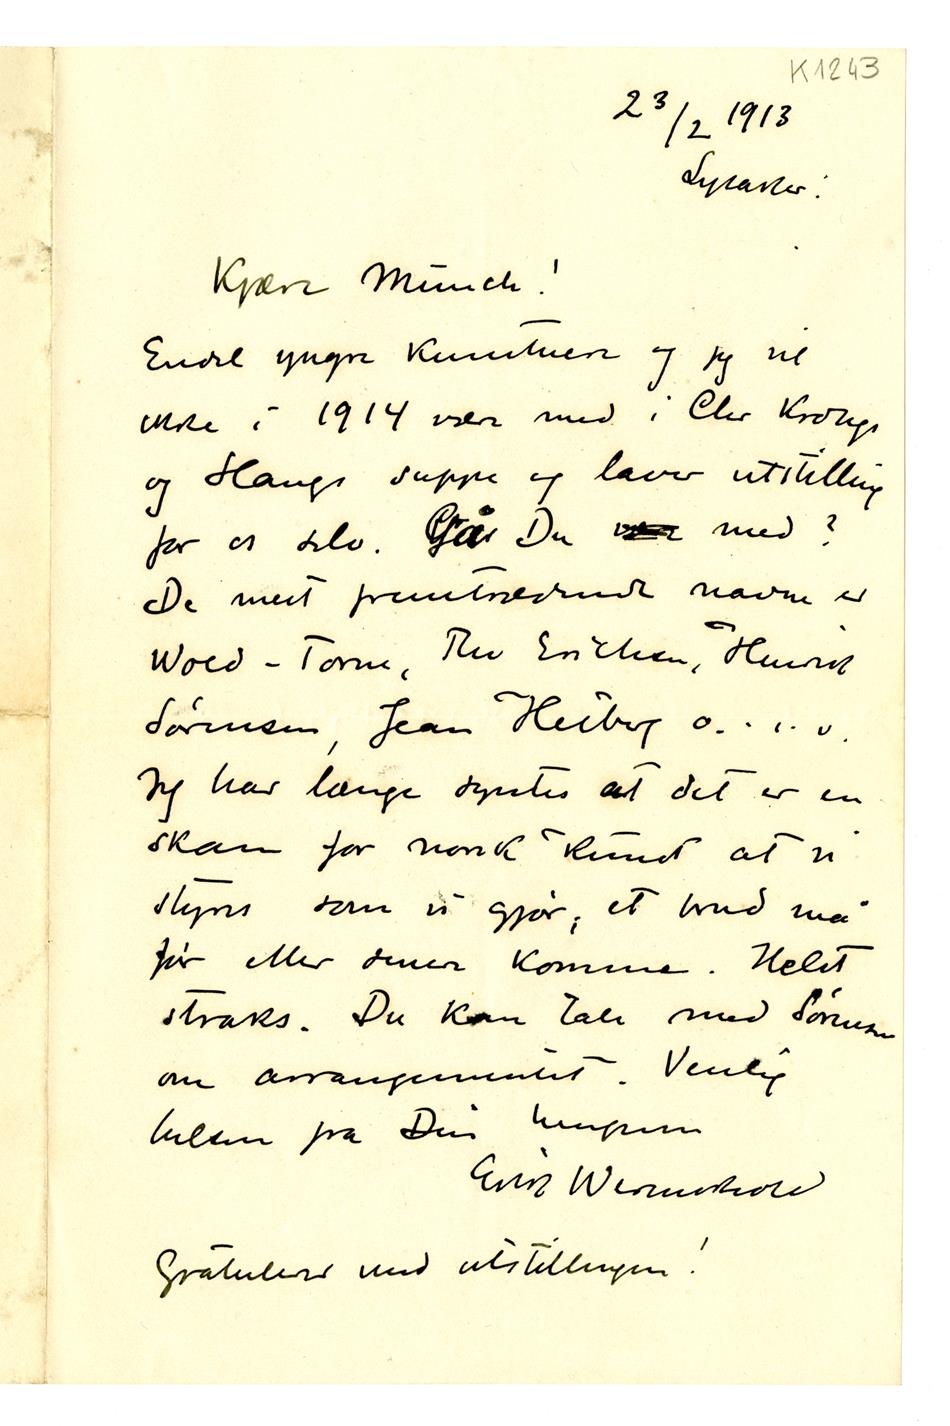 K1243
23/2 1913
Lysaker.
Kjære Munch!
Endel yngre kunstnere og jeg vil
ikke i 1914 være med i Chr Krohgs
og Haugs suppe og laver utstilling
for os selv. Går Du med?
De mest fremtrædende navne er
Wold-Torne, Thv Erichsen, Henrik
Sørensen, Jean Heiberg o. s. v.
Jeg har længe syntes at det er en
skam for norsk kunst at vi
styres som vi gjør; et brud må
før eller senere komme. Helst
straks. Du kan tale med Sørensen
om arrangementet. Venlig
hilsen fra Din hengivne
Erik Werenskiold
Gratulerer med utstillingen!